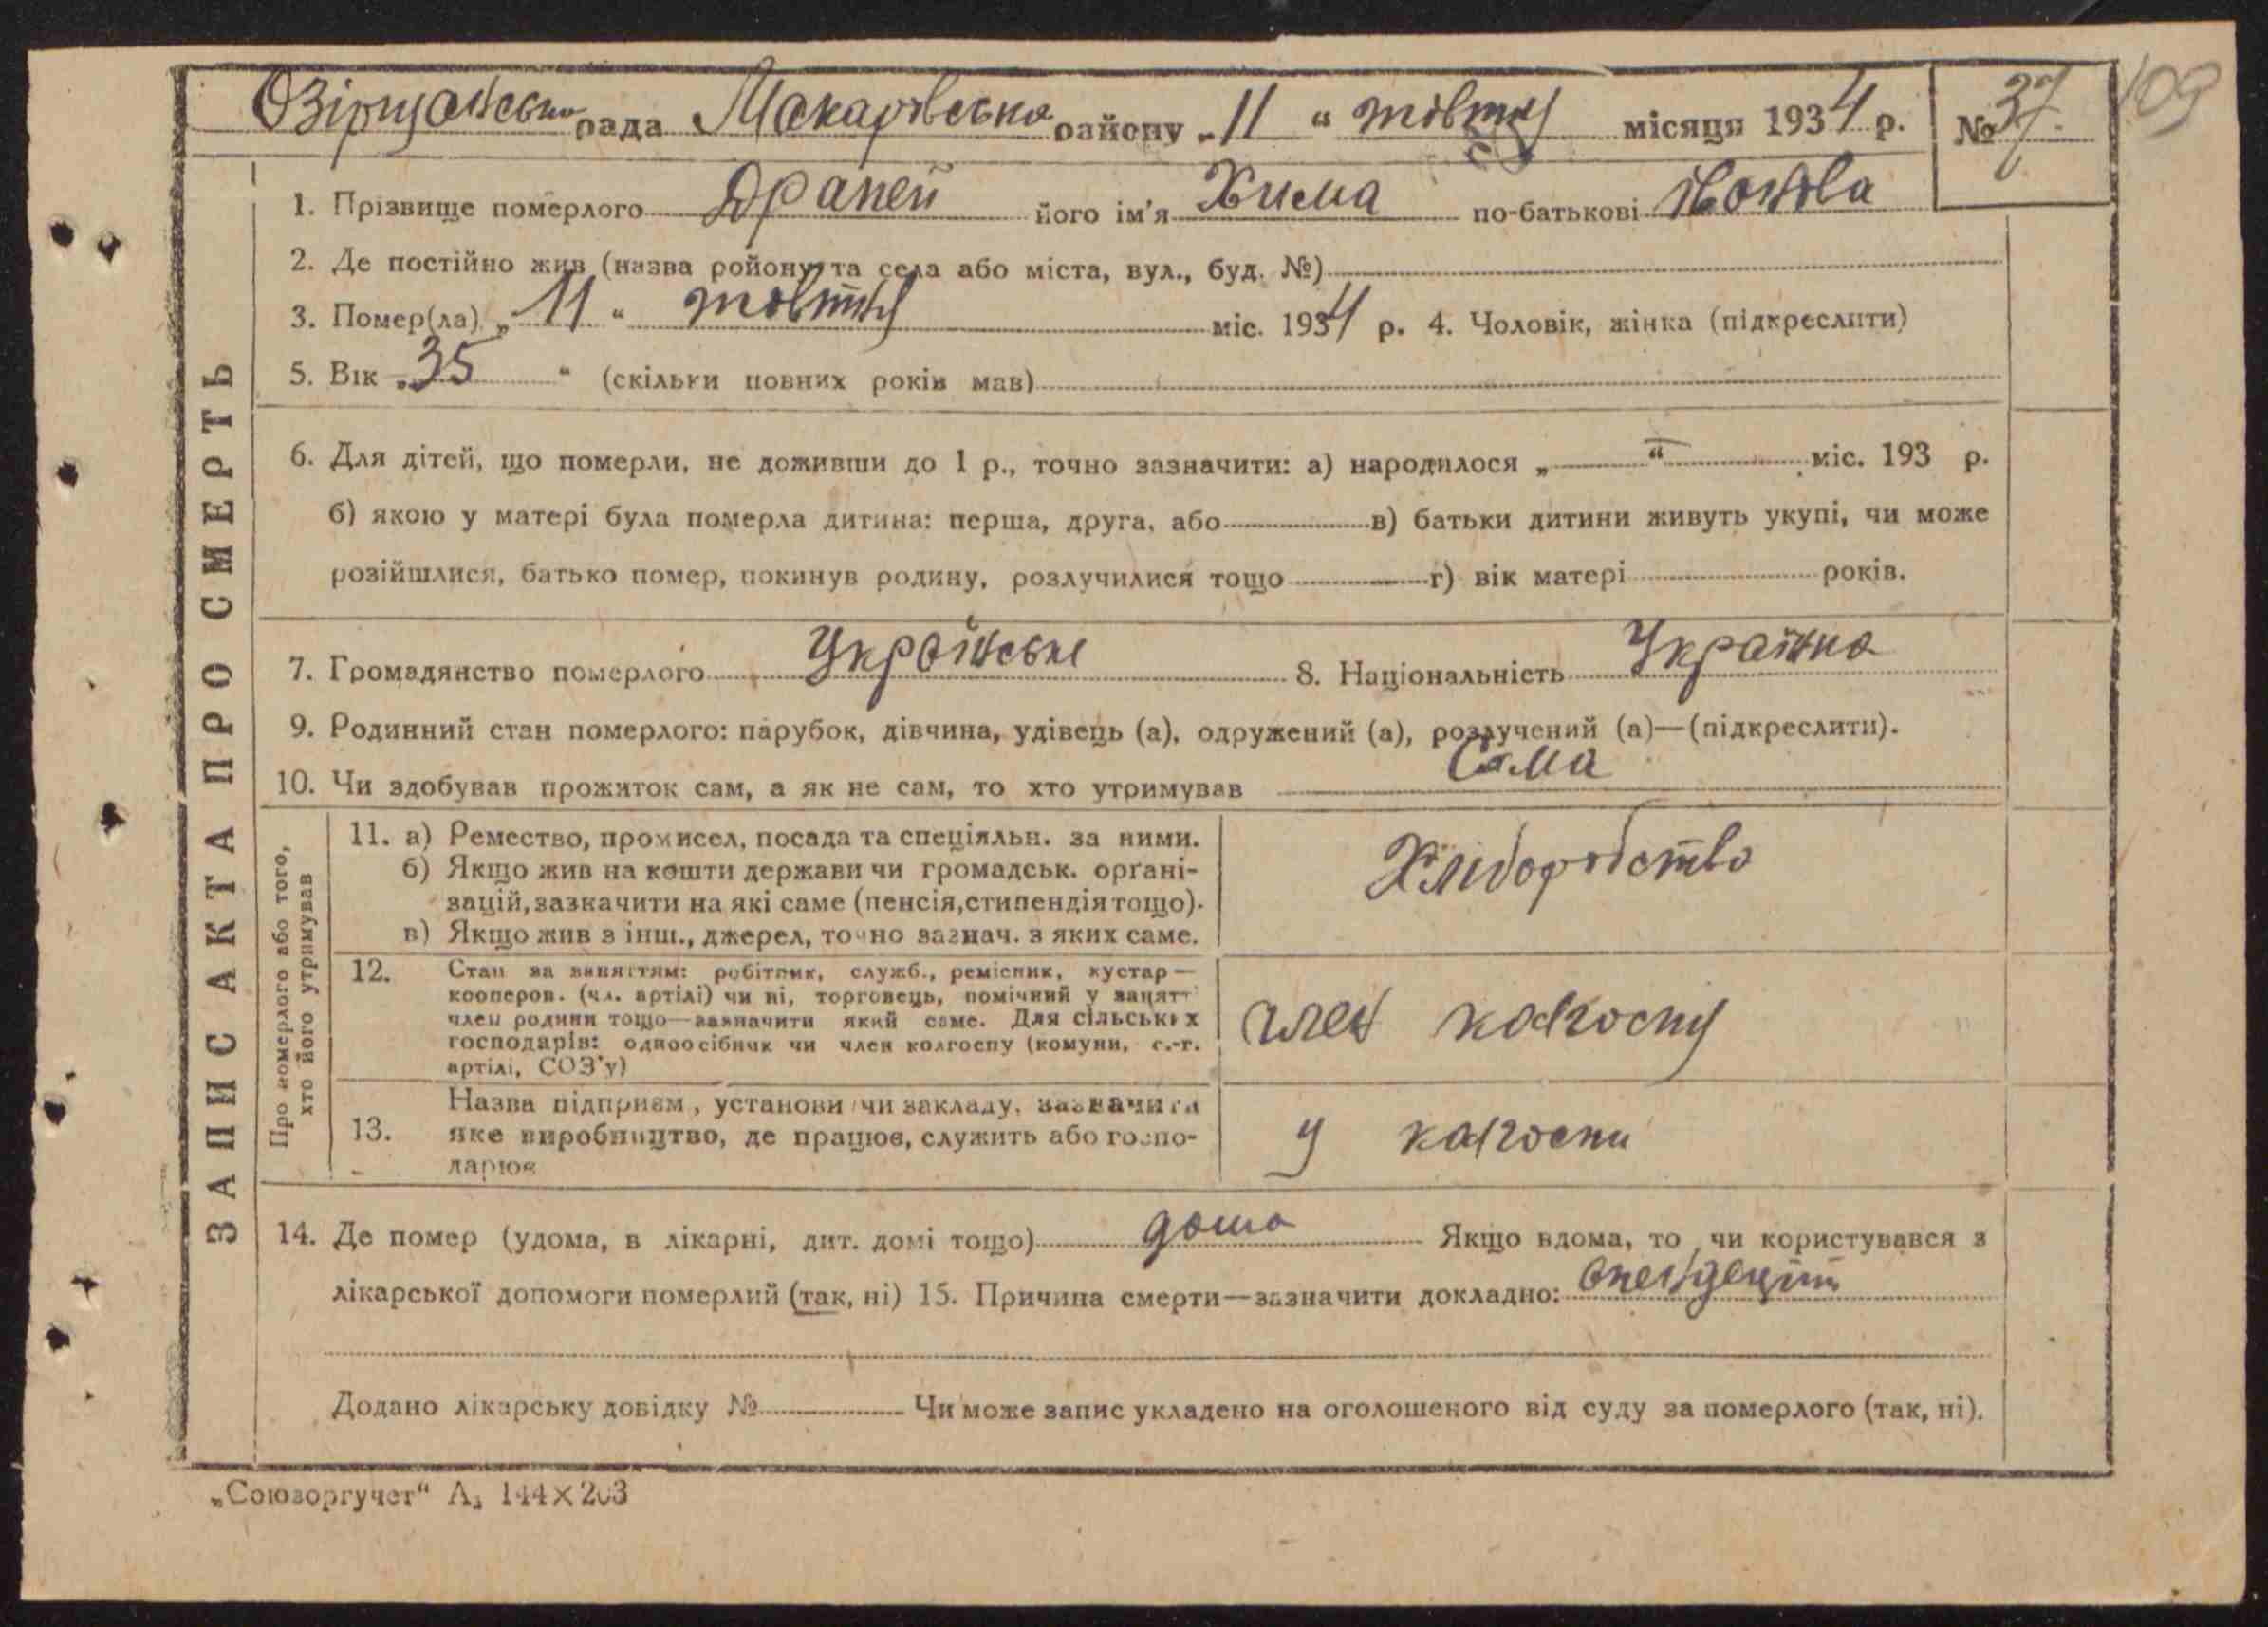 Озірщанська рада Макарівсько району „11“ жовтня місяця 1934 р. № 37. 109
1. Прізвище померлого Драпей його ім'я Хима по-батькові Івонова
2. Де постійно жив (назва ройону та села або міста, вул., буд. №)
3. Помер(ла) „11“ жовтня міс. 1934 р. 4. Чоловік, жінка (підкреслити)
5. Вік „35“ (скільки повних років мав)
6. Для дітей, що померли, не доживши до 1 р., точно зазначити: а) народилося „ “ міс. 193 р.
б) якою у матері була померла дитина: перша, друга, або в) батьки дитини живуть укупі, чи може
розійшлися, батько помер, покинув родину, розлучилися тощо г) вік матері років.
7. Громадянство померлого Українське 8. Національність Українка
9. Родинний стан померлого: парубок, дівчина, удівець (а), одружений (а), розлучений (а)—(підкреслити).
10. Чи здобував прожиток сам, а як не сам, то хто утримував Сама
11. а) Ремество, промисел, посада та спеціяльн. за ними.
б) Якщо жив на кошти держави чи громадськ. органі-
зацій, зазначити на які саме (пенсія, стипендія тощо).
в) Якщо жив з інш., джерел, точно зазнач. з яких саме.
Хлиборобство
12. Стан за заняттям: робітник, служб., ремісник, кустар—
кооперов. (чл. артілі) чи ні, торговець, помічний у занятт
член родини тощо—зазначити який саме. Для сільських
господарів: одноосібник чи член колгоспу (комуни, с.-г.
артілі, СОЗ'у)
член колгоспу
13. Назва підприєм, установи чи закладу, зазначити
яке виробництво, де працює, служить або госпо-
дарює
у колгоспи
14. Де помер (удома, в лікарні, дит. домі тощо) дома Якщо вдома, то чи користувався з
лікарської допомоги померлий (так, ні) 15. Причина смерти—зазначити докладно:
Додано лікарську довідку № Чи може запис укладено на оголошеного від суду за померлого (так, ні).
ЗАПИС АКТА ПРО СМЕРТЬ
Про померлого або того,
хто його утримував
„Союзоргучет“ А₅ 144×203